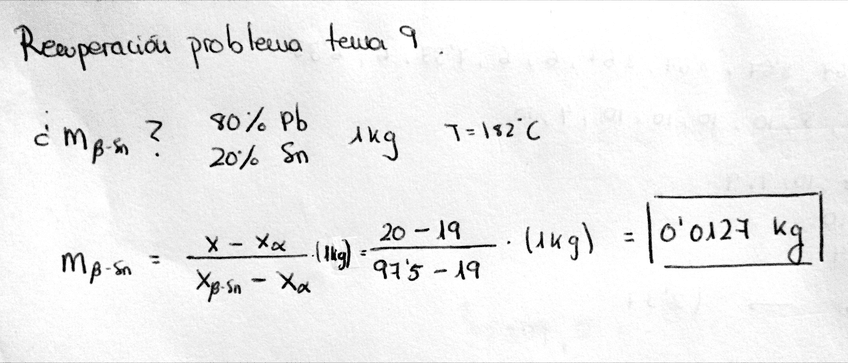 Recuperación problema tema 9.
¿ m β-Sn ? 80% Pb 1kg T=182°C
20% Sn
m β-Sn = (x - xα)/(xβ-Sn - xα) · (1kg) = (20 - 19)/(97'5 - 19) · (1kg) = 0'0127 kg